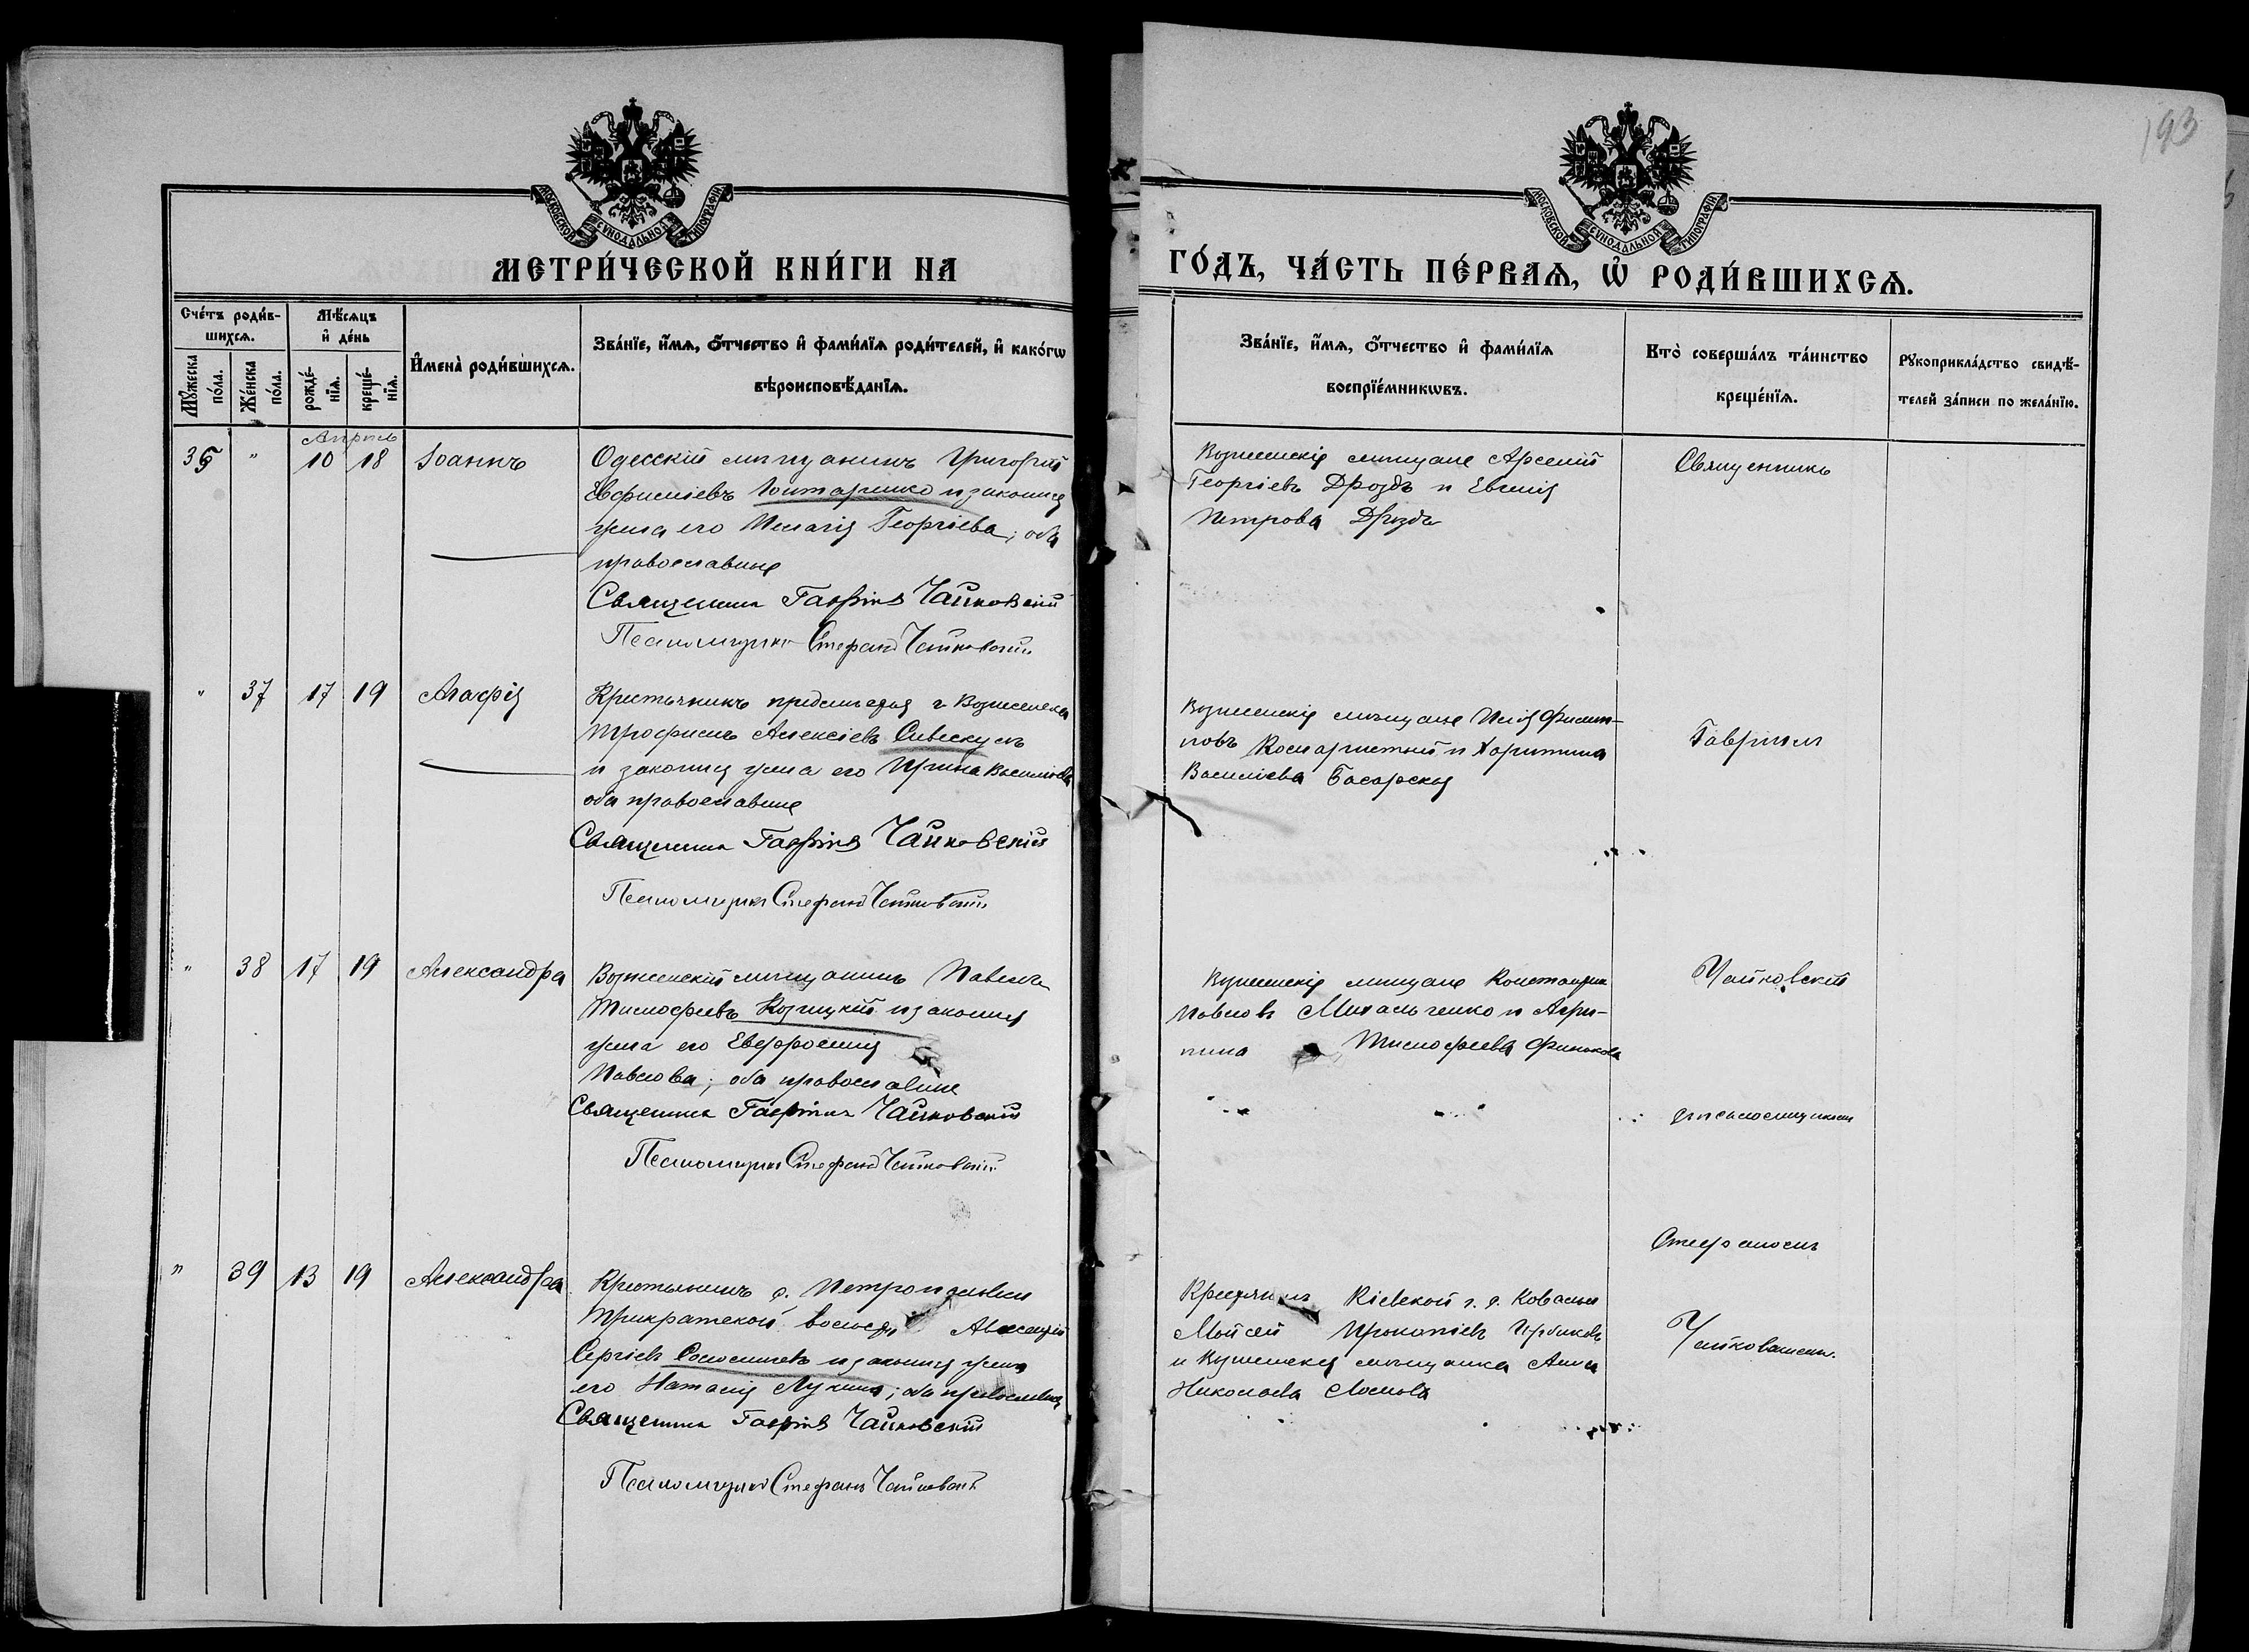 193
МОСКОВСКОЙ СѴНОДАЛЬНОЙ ТИПОГРАФІИ
МОСКОВСКОЙ СѴНОДАЛЬНОЙ ТИПОГРАФІИ
МЕТРИ́ЧЕСКОЙ КНИ́ГИ НА
ГО́ДЪ, ЧА́СТЬ ПЕ́РВАѦ, Ѡ҆ РОДИ́ВШИХСѦ.
Сче́тъ роди́в-
шихсѧ.
Мꙋ́жеска
по́ла.
Же́нска
по́ла.
Мѣ́сѧцъ
и҆ де́нь
рожде́-
нїѧ.
креще́-
нїѧ.
И҆мена̀ роди́вшихсѧ.
Зва́нїе, и҆́мѧ, ѻ҆́тчество и҆ фами́лїѧ роди́телей, и҆ како́гѡ
вѣроисповѣ́данїѧ.
Зва́нїе, и҆́мѧ, ѻ҆́тчество и҆ фами́лїѧ
воспрїе́мникѡвъ.
Кто̀ соверша́лъ та́инство
креще́нїѧ.
Рꙋкоприкла́дство свидѣ́-
телей за́писи по жела́нїю.
Апрель
36 " 10 18 Іоаннъ
Одесскій мѣщанинъ Григорій
и законная
жена его Пелагія Георгіева; оба
православные
Священникъ Гавріилъ Чайковскій
Псаломщикъ Стефанъ Чайковскій
Вознесенскіе мѣщане Арсеній
Георгіевъ Дроздъ и Евгенія
Петрова Дроздъ
Священникъ
" 37 17 19 Агафія
Крестьянинъ предмѣстья г. Вознесенска
Трофимъ Алексіевъ
и законная жена его Ирина Васильева
оба православные
Священникъ Гавріилъ Чайковскій
Псаломщикъ Стефанъ Чайковскій
Вознесенскіе мѣщане Илія Филип-
повъ и Харитина
Васильева
Гавріилъ
" 38 17 19 Александра
Вознесенскій мѣщанинъ Павелъ
Тимофеевъ Козицкій и законная
жена его Евфросинія
Павлова; оба православные
Священникъ Гавріилъ Чайковскій
Псаломщикъ Стефанъ Чайковскій
Вознесенскіе мѣщане Константинъ
Павловъ Михальченко и Агри-
пина Тимофеева
Чайковскій
съ псаломщикомъ
Стефаномъ
" 39 13 19 Александра
Крестьянинъ с. Петропавловки
Трикратской волости Авксентій
Сергіевъ и законная жена
его Наталія Лукина; оба православные
Священникъ Гавріилъ Чайковскій
Псаломщикъ Стефанъ Чайковскій
Кіевской г. с.
Мойсей Прокопіевъ
и Вознесенская мѣщанка Анна
Николаева
Чайковскимъ.